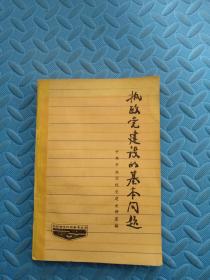 执政党建设的基本问题
中共中央党校党建教研室编